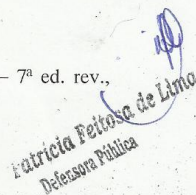 – 7ª ed. rev.,
Patrícia Feitosa de Lima
Defensora Pública